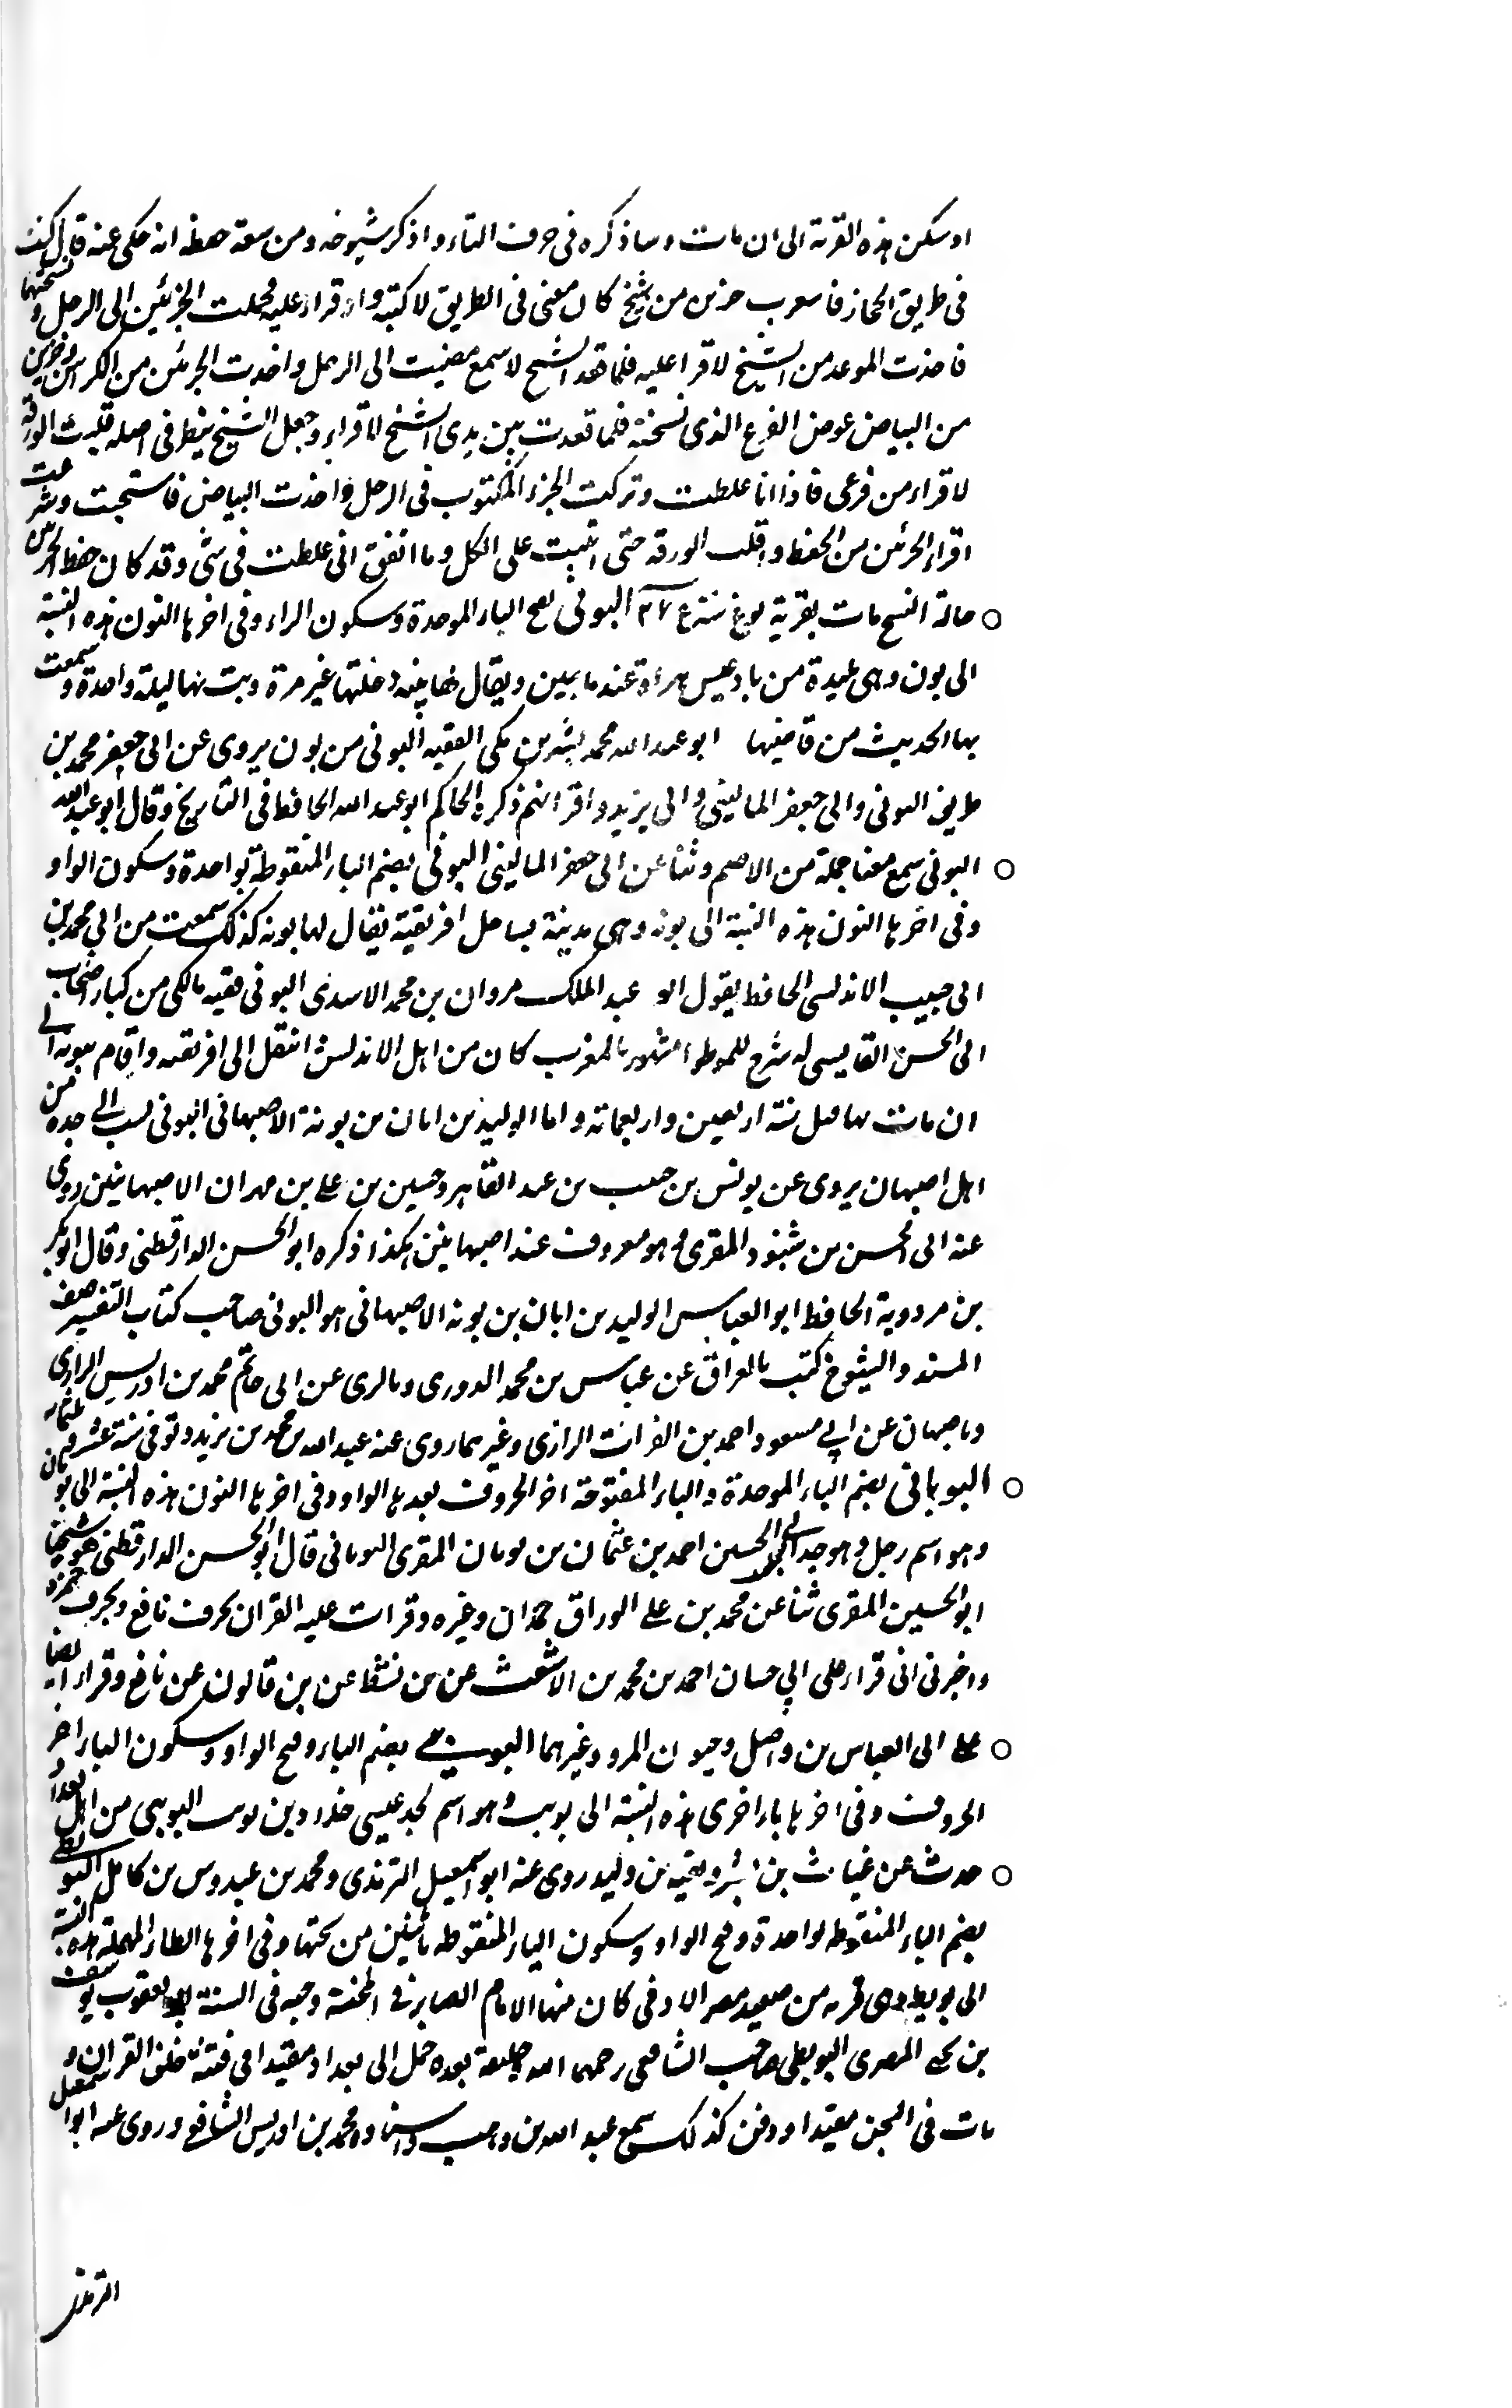 او سكن هذه القرية الى ان مات وساذكره فى حرف التاء واذكر شيوخه ومن سعة حفظه انه حكى عنه قال كنت
فى طريق الحجاز فاستعرت جزءين من شيخ كان معنى فى الطريق لاكتبه واقراء عليه فحملت الجزئين الى الرحل ونسختهما
فاخذت الموعد من الشيخ لاقرا عليه فلما قعد الشيخ لاسمع مضيت الى الرحل واخذت الجزئين من الكراس
من البياض عوض الفرع الذى نسخته فلما قعدت بين يدى الشيخ لاقراء وجعل الشيخ ينظر فى اصله قلبت الورقة
لاقراء من فرعى فاذا انا غلطت وتركت الجزء المكتوب فى الرحل واخذت البياض فاستحيت وشرعت
اقراء الجزئين من الحفظ واقلب الورقة حتى اتيت على الكل وما اتفق انى غلطت فى شى وقد كان حفظ الجزئين
حالة النسخ مات بقرية بوغ سنة البونى بفتح الباء الموحدة وسكون الراء وفى اخرها النون هذه النسبة
الى بون وهى بليدة من بادغيس هراة عند بامئين ويقال لها ببنه دخلتها غير مرة وبت بها ليلة واحدة وسمعت
بها الحديث من قاضيها ابو عبد الله محمد بشر بن بكى الفقيه البونى من بون يروى عن ابى جعفر محمد بن
طريف البونى وابى جعفر المالينى وابى يزيد واقرانهم ذكره الحاكم ابو عبد الله الحافظ فى التاريخ وقال ابو عبد الله
البونى سمع معنا جملة من الاصم وثنا عن ابى جعفر المالينى البونى بضم الباء المنقوطة بواحدة وسكون الواو
وفى اخرها النون هذه النسبة الى بونه وهى مدينة بساحل افريقية يقال لها بونه كذلك سمعت من ابى محمد بن
ابى حبيب الاندلسى الحافظ يقول ابو عبد الملك مروان بن محمد الاسدى البونى فقيه مالكى من كبار اصحاب
ابى الحسن القابسى له شرح للموطا مشهور بالمغرب كان من اهل الاندلس انتقل الى افريقيه واقام ببونه الى
ان مات بها قبل سنة اربعين واربعمائة واما الوليد بن ابان بن بونة الاصبهانى البونى نسب الى جده من
اهل اصبهان يروى عن يونس بن حبيب بن عبد القاهر وحسين بن على بن مهران الاصبهانيين روى
عنه ابى الحسن بن شنبوذ المقرى وهو معروف عند اصبهانيين هكذا ذكره ابو الحسن الدارقطنى وقال ابو بكر
بن مردوية الحافظ ابو العباس الوليد بن ابان بن بونه الاصبهانى هو البونى صاحب كتاب التفسير صنف
المسند والشيوخ كتب بالعراق عن عباس بن محمد الدورى وبالرى عن ابى حاتم محمد بن ادريس الرازى
وباصبهان عن ابى مسعود احمد بن الفرات الرازى وغيرهما روى عنه عبد الله بن محمد بن يزيد وتوفى سنة عشر وثلثمائة
البويانى بضم الباء الموحدة والياء المفتوحة اخر الحروف بعدها الواو وفى اخرها النون هذه النسبة الى بويان
وهو اسم رجل وهو جد ابى الحسين احمد بن عثمان بن بويان المقرى البويانى قال ابو الحسن الدارقطنى هو شيخنا
ابو الحسين المقرى ثنا عن محمد بن على الوراق حمدان وغيره وقرات عليه القران بحرف نافع وبحرف حمزه
واخبرنى انى قراء على ابى حسان احمد بن محمد بن الاشعث عن بن نشيط عن بن قالون عن نافع وقراء ايضا
على ابى العباس بن واصل وحيون المرو وغيرهما البويبى بضم الباء وفتح الواو وسكون الياء اخر
الحروف وفى اخرها باء اخرى هذه النسبة الى بويب وهو اسم لجد عيسى خلاد بن بويب البويبى من اهل بغداد
حدث عن غياث بن بشر وبقيه بن وليد روى عنه ابو اسمعيل الترمذى ومحمد بن عبدوس بن كامل البويطى
بضم الباء المنقوطه بواحدة وفتح الواو وسكون الياء المنقوطه باثنين من تحتها وفى اخرها الطاء المهملة هذه النسبة
الى بويط وهى قريه من صعيد مصر الادنى كان منها الامام الصابر فى المحنة وحبه فى السنة ابو يعقوب يوسف
بن يحيى المصرى البويطى صاحب الشافعى رحمهما الله خليفة بعده حمل الى بغداد مقيدا فى فتنة خلق القران و
مات فى السجن مقيدا ودفن كذلك سمع عبد الله بن وهب واستاده محمد بن ادريس الشافعى وروى عنه ابو اسمعيل
الترمذى